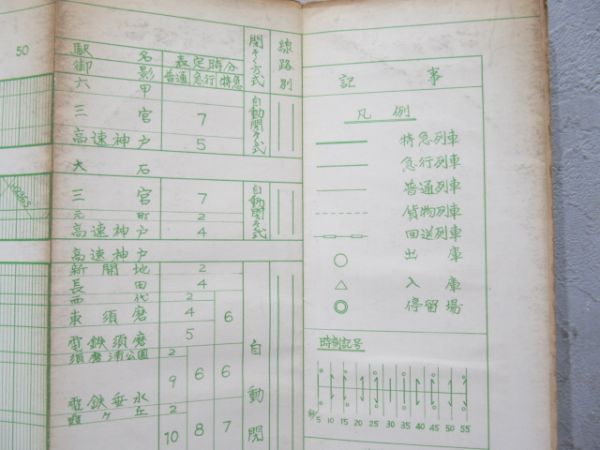 50
駅名 表定時分 閉そく方式 線路別
御影 普通 急行 特急
六甲
三宮 7 自動閉そく式
高速神戸 5
大石
三宮 7 自動閉そく式
元町 2
高速神戸 4
高速神戸
新開地 2
長田 4
西代 2
東須磨 4 6
電鉄須磨 5
須磨浦公園 2
9 6 6
電鉄垂水
霞ヶ丘 2
10 8 7
自動閉
記事
凡例
特急列車
急行列車
普通列車
貨物列車
回送列車
出庫
入庫
停留場
時刻記号
秒 5 10 15 20 25 30 35 40 45 50 55